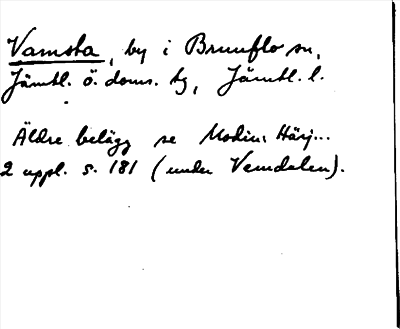 Vamsta, by i Brunflo sn,
Jämtl. ö. doms. tg, Jämtl. l.
Äldre belägg se Modin: Härj...
2 uppl. s. 181 (under Vemdalen).